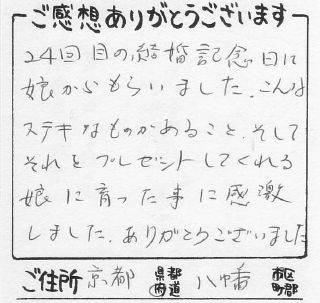 ご感想ありがとうございます
24回目の結婚記念日に
娘からもらいました。こんな
ステキなものがあること、そして
それをプレゼントしてくれる
娘に育った事に感激
しました。ありがとうございました
ご住所 京都 都道府県 八幡 市区町郡